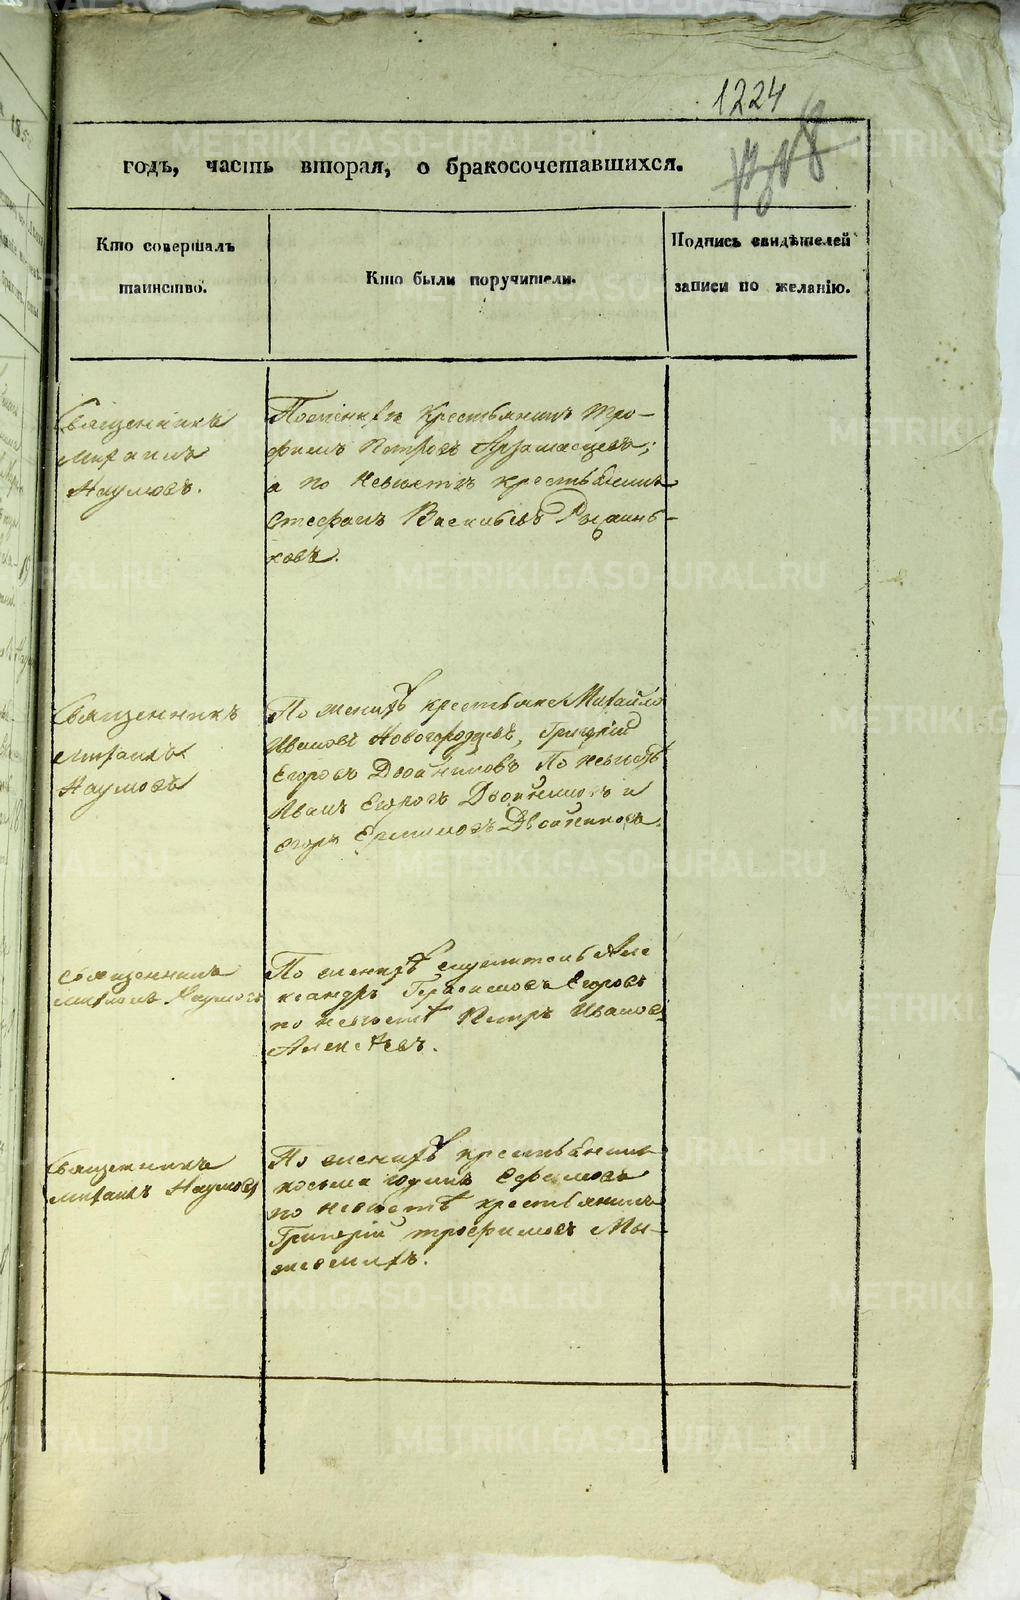 1224
годъ, часть вторая, о бракосочетавшихся.
Кто совершалъ
таинство.
Кто были поручители.
Подпись свидѣтелей
записи по желанію.
Священникъ
Михаилъ
Наумовъ.
По женихѣ Крестьянинъ Тро-
фимъ Петровъ Арзамасцевъ;
а по Невѣстѣ крестьянинъ
Стефанъ Васильевъ
ковъ.
Священникъ
Михаилъ
Наумовъ
По женихѣ крестьяне Михайло
Ивановъ Новогородцевъ, Григорій
Егоровъ Двойниковъ По невѣстѣ
Иванъ Егоровъ Двойниковъ и
Егоръ Двойниковъ.
Священникъ
Михаилъ Наумовъ
По женихѣ служитель Але
ксандръ Герасимовъ Егоровъ
по невѣстѣ Петръ Ивановъ
Алексѣевъ.
Священникъ
Михаилъ Наумовъ
По женихѣ крестьянинъ
косьма
по невѣстѣ крестьянинъ
Григорій трофимовъ Мы-
METRIKI.GASO-URAL.RU